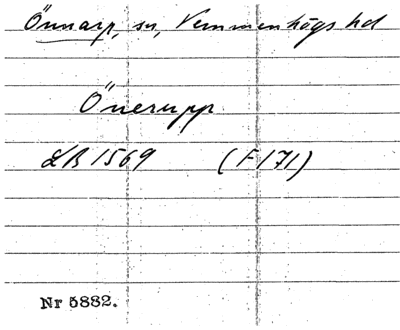 Önnarp, sn, Vemmenhögs hd
Önerupp
LB 1569 (F 171)
Nr 5882.